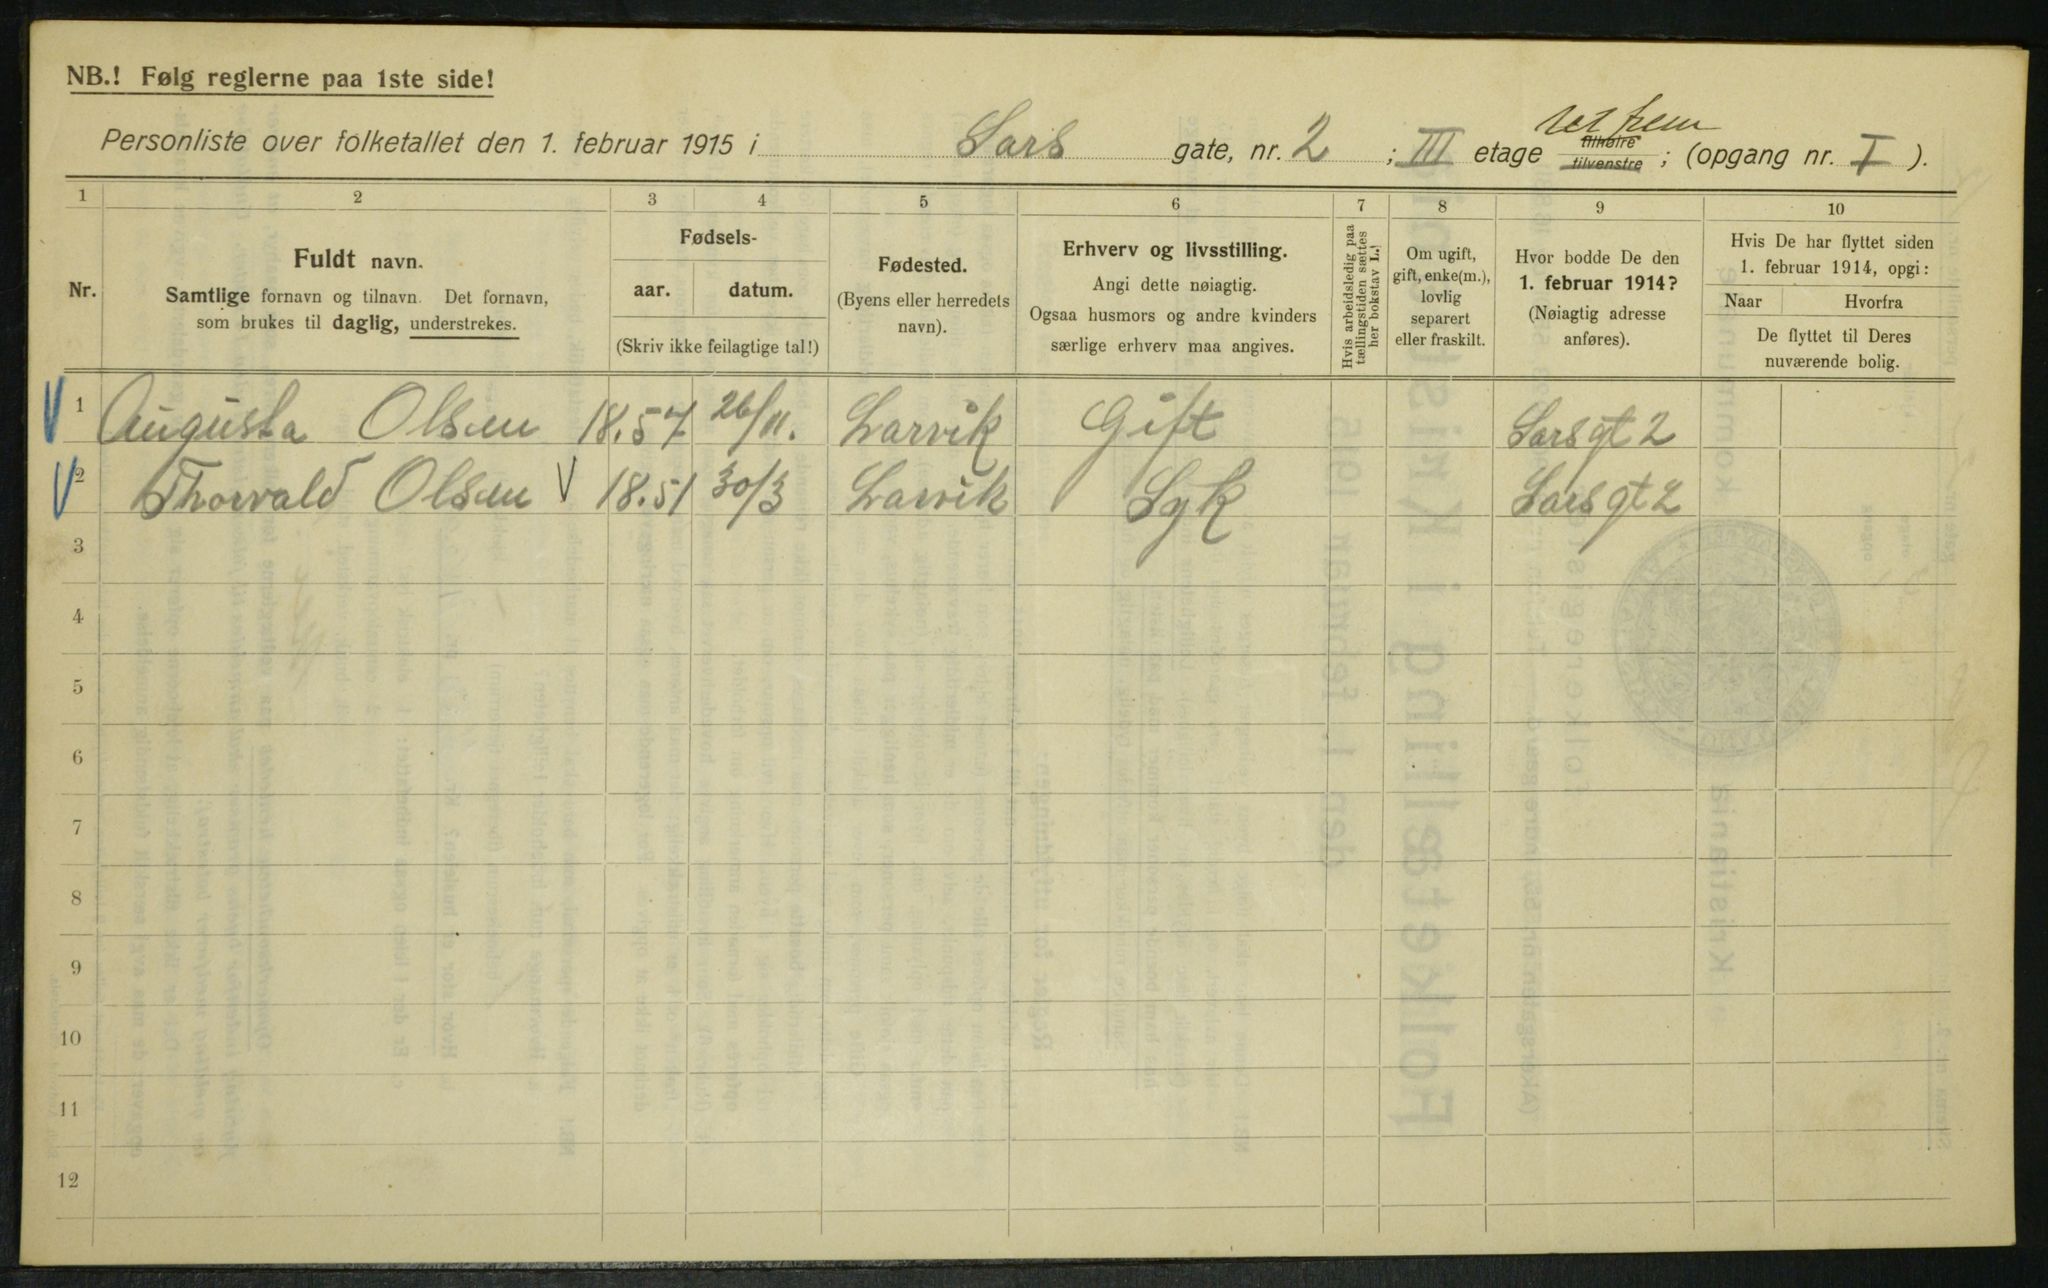 NB.! Følg reglerne paa 1ste side!
ret frem
Personliste over folketallet den 1. februar 1915 i Sars gate, nr. 2 ; III etage tilhøire tilvenstre ; (opgang nr. I ).
1 2 3 4 5 6 7 8 9 10
Nr.
Fuldt navn.
Samtlige fornavn og tilnavn. Det fornavn,
som brukes til daglig, understrekes.
Fødsels-
aar. datum.
(Skriv ikke feilagtige tal!)
Fødested.
(Byens eller herredets
navn).
Erhverv og livsstilling.
Angi dette nøiagtig.
Ogsaa husmors og andre kvinders
særlige erhverv maa angives.
Hvis arbeidsledig paa
tællingstiden sættes
her bokstav L.!
Om ugift,
gift, enke(m.),
lovlig
separert
eller fraskilt.
Hvor bodde De den
1. februar 1914?
(Nøiagtig adresse
anføres).
Hvis De har flyttet siden
1. februar 1914, opgi:
Naar Hvorfra
De flyttet til Deres
nuværende bolig.
V 1 Augusta Olsen 18.57 26/11. Larvik Gift Sars gt 2
V 2 Thorvald Olsen V 18.51 30/3 Larvik Syk Sars gt 2
3
4
5
6
7
8
9
10
11
12